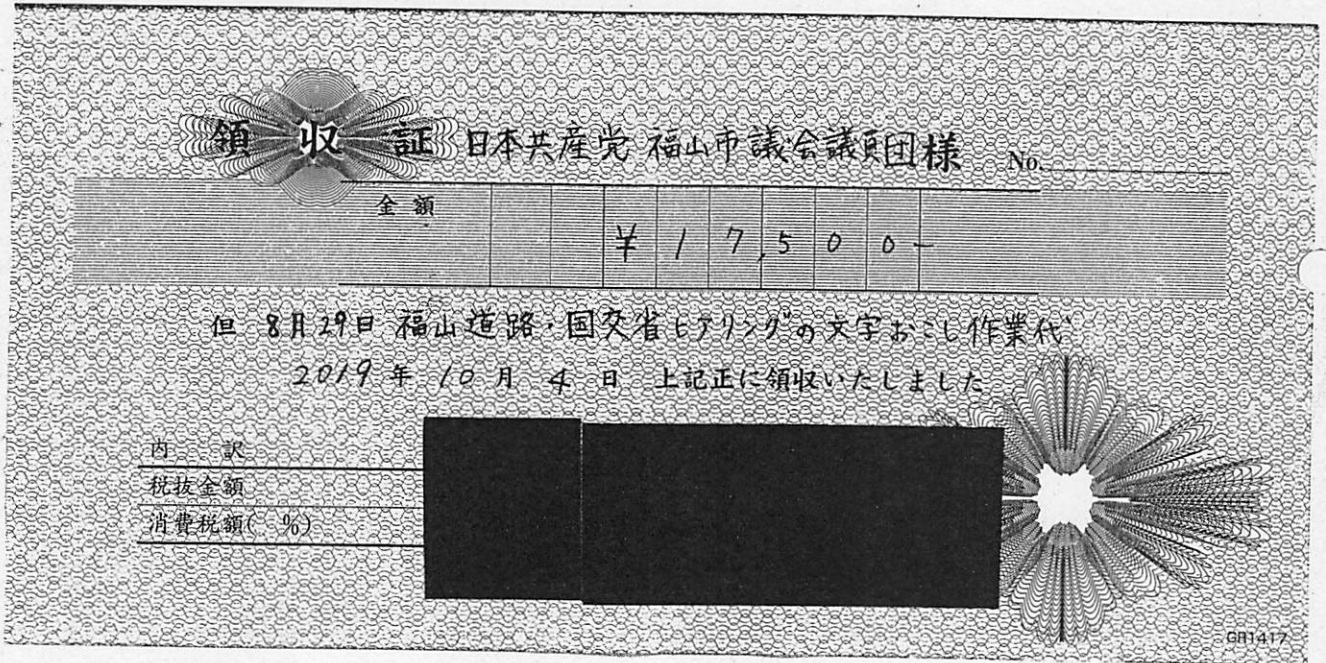 領収証 日本共産党 福山市議会議員団様 No.
金額 ¥17,500-
但 8月29日 福山道路・国交省ヒアリングの文字おこし作業代
2019年10月4日 上記正に領収いたしました
内訳
税抜金額
消費税額( %)
GR1417